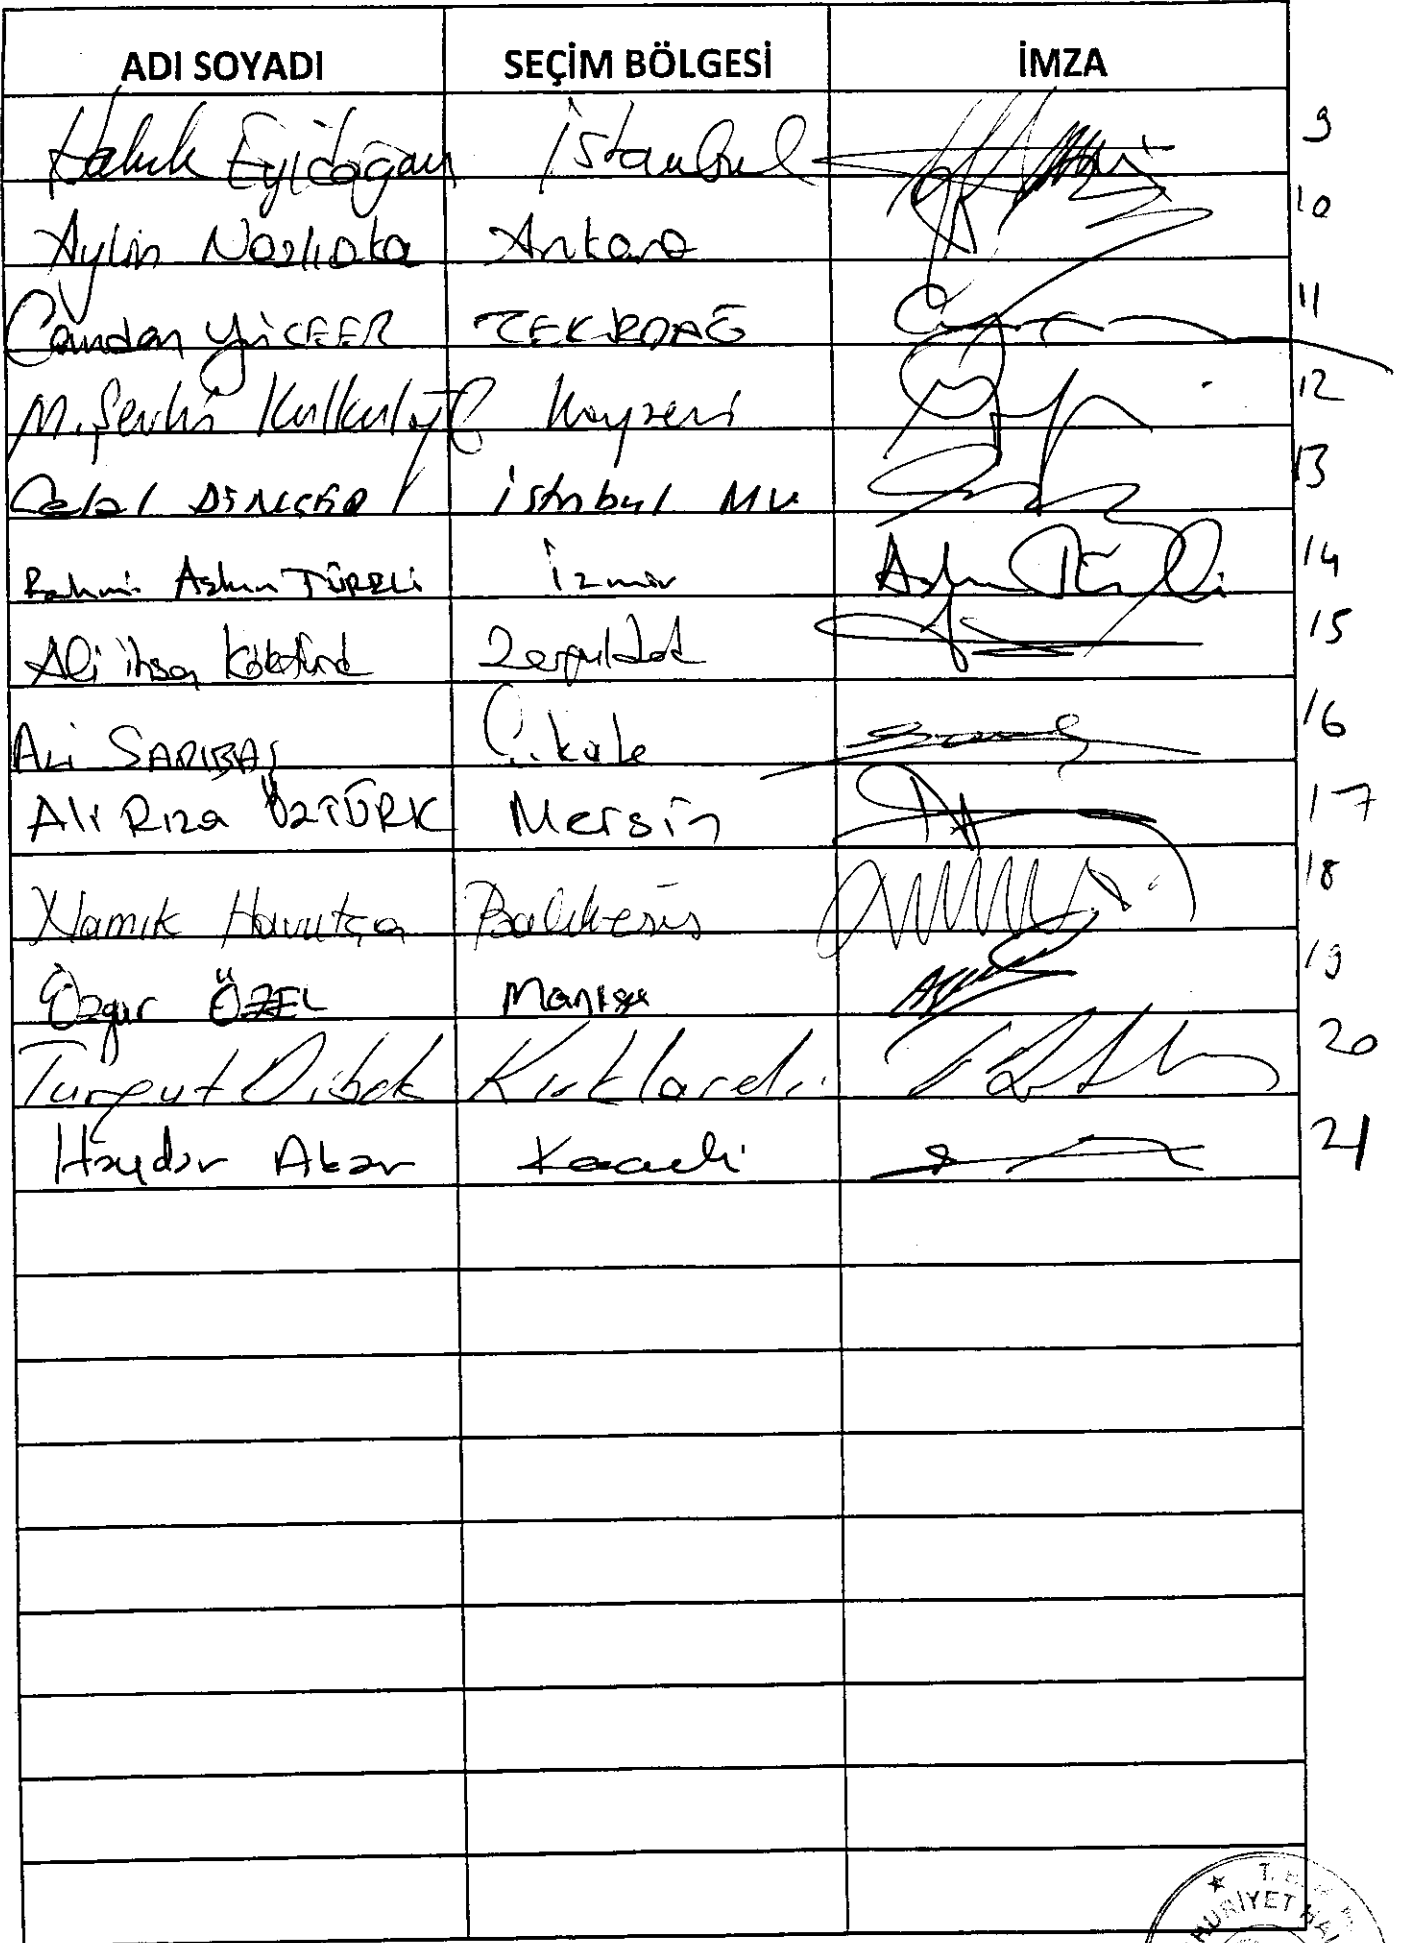 ADI SOYADI SEÇİM BÖLGESİ İMZA
Haluk Eyidoğan İstanbul 9
Aylin Nazlıaka Ankara 10
Candan YÜCEER TEKİRDAĞ 11
M. Şevki Kulkuloğlu Kayseri 12
Celal DİNÇER İstnbul MV 13
Rahmi Aşkın TÜRELİ İzmir 14
Ali İhsan Köktürk Zonguldak 15
Ali SARIBAŞ Ç.kale 16
Ali Rıza ÖZTÜRK Mersin 17
Namık Havutça Balıkesir 18
Özgür ÖZEL Manisa 19
Turgut Dibek Kırklareli 20
Haydar Akar Kocaeli 21